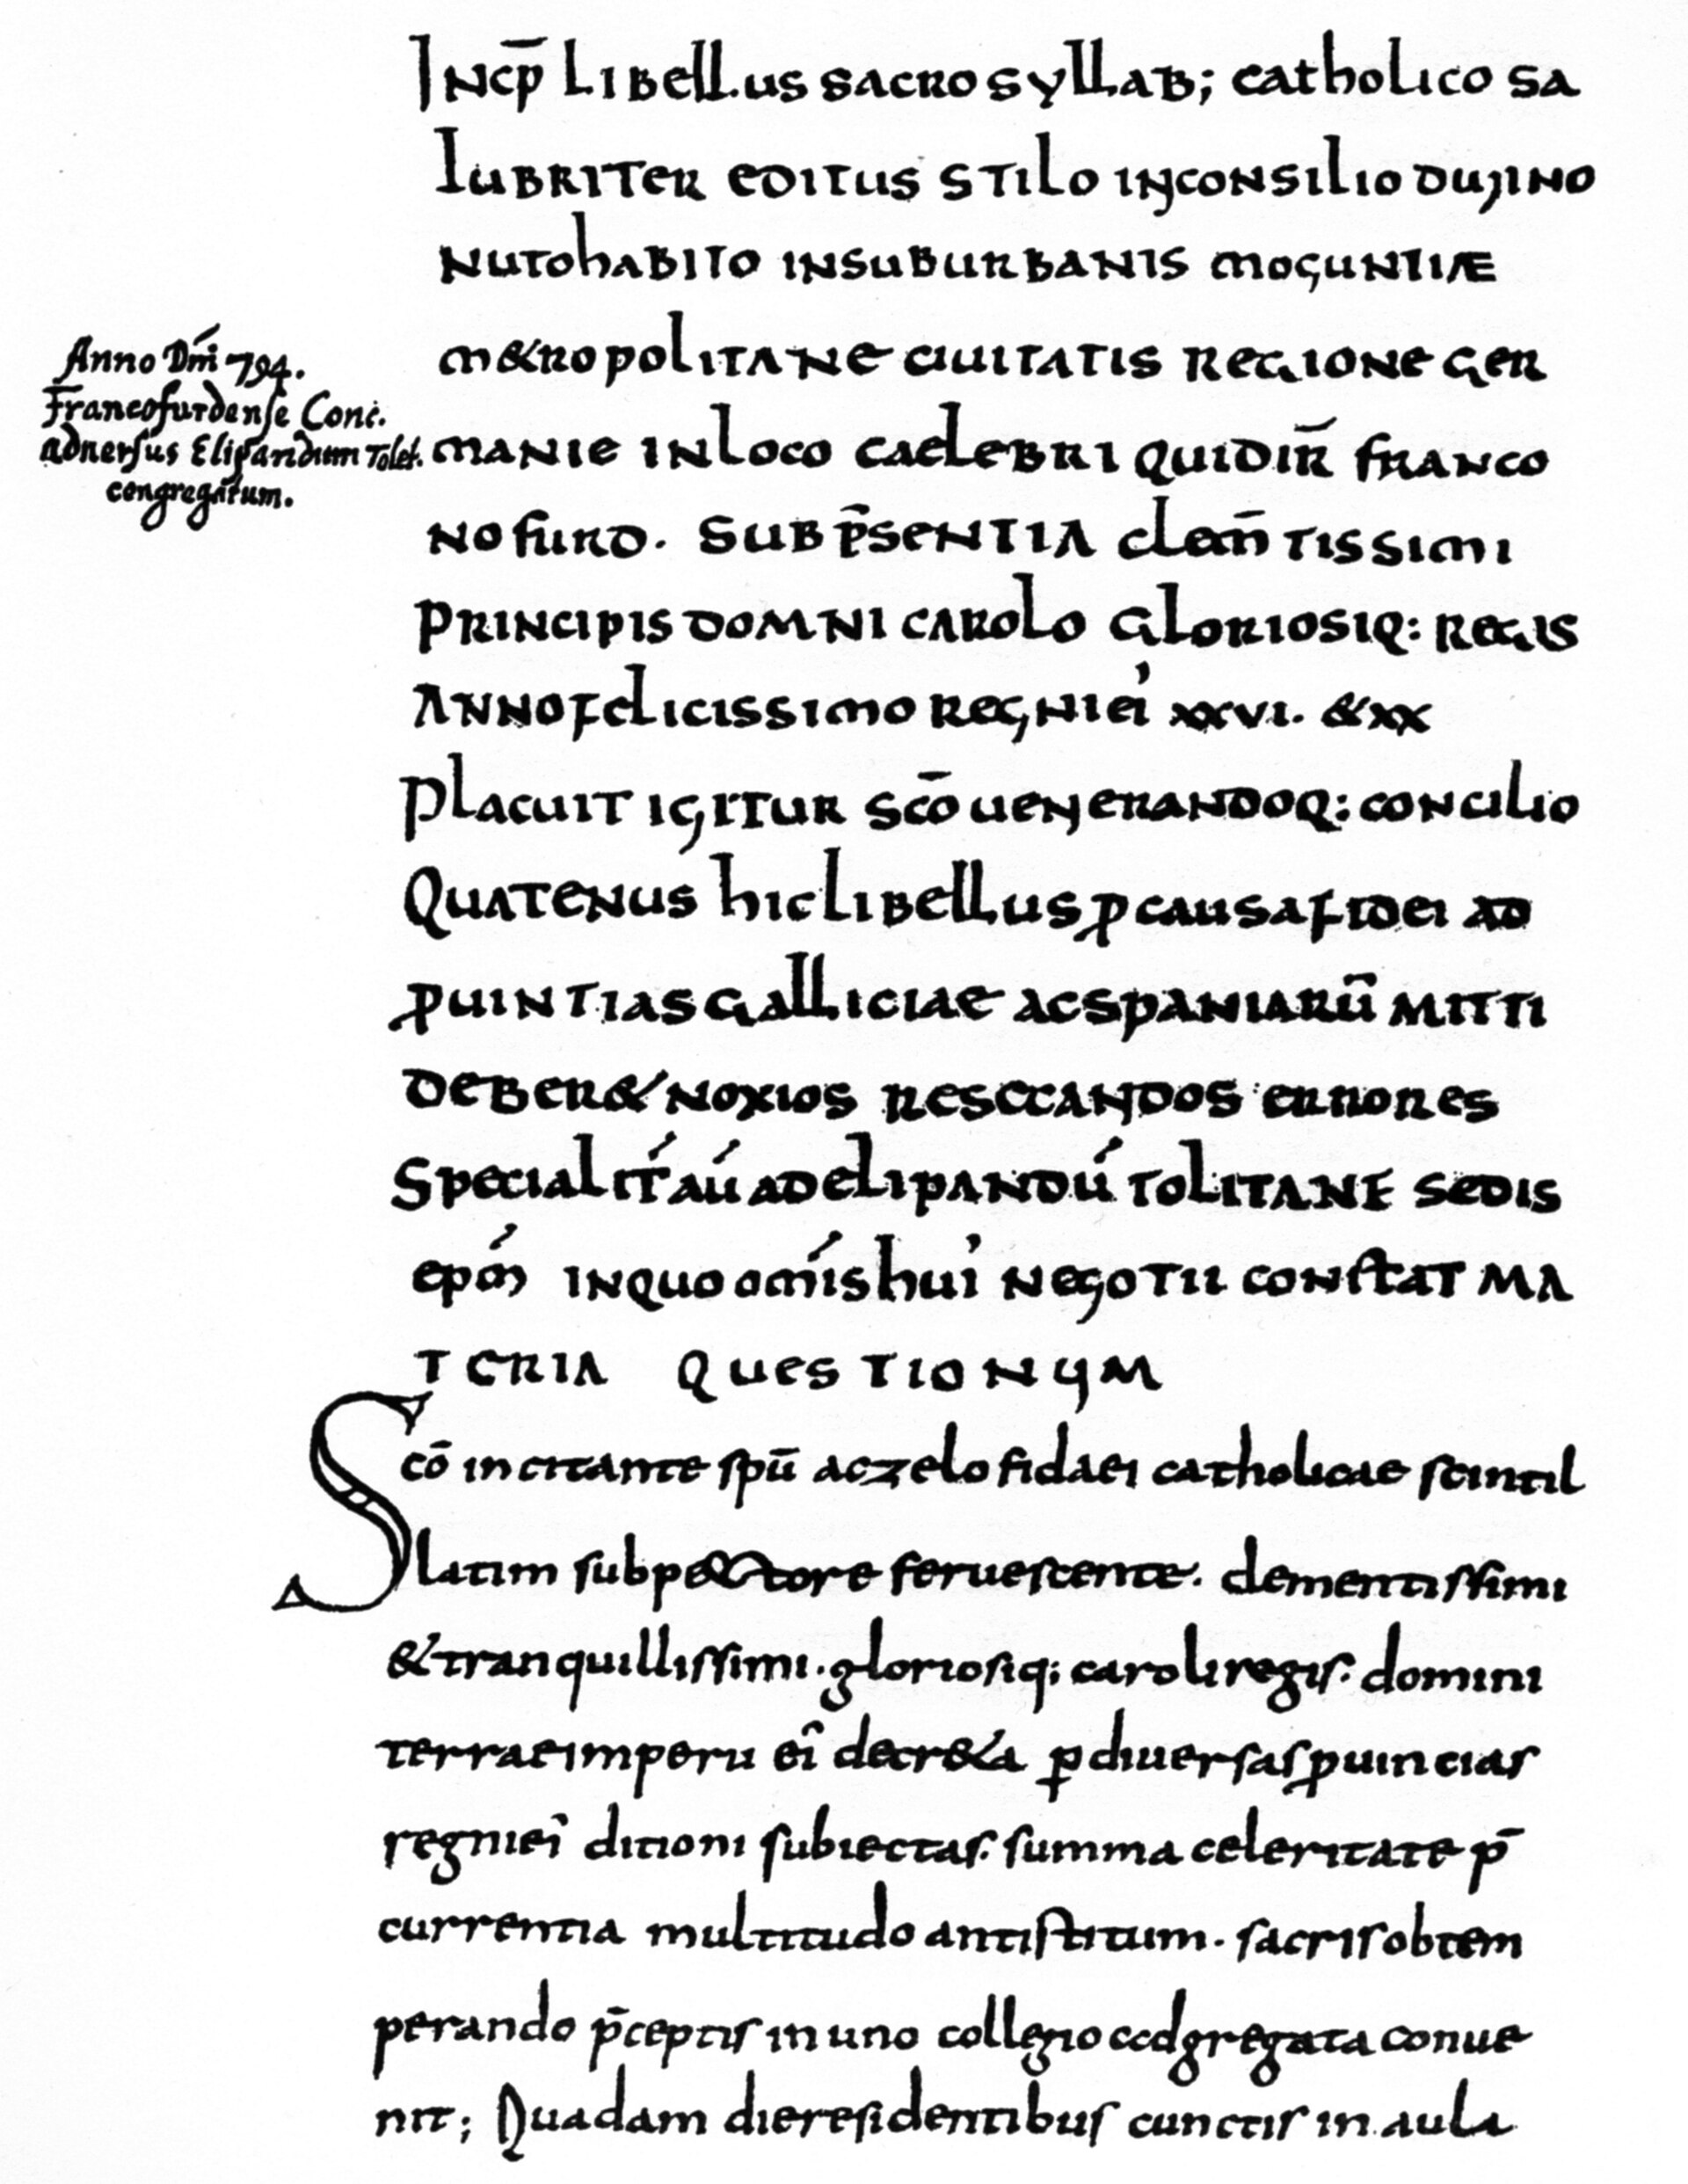 Incp̄ libellus sacrosyllab; catholico sa
lubriter editus stilo inconsilio duuino
nutohabito insuburbanis moguntiæ
m&ropolitane ciuitatis regione ger
manie inloco caelebri quidir̄ franco
nofurd. sub p̄sentia clem̄tissimi
principis domni carolo gloriosiq: regis
anno felicissimo regni ei' xxvi. & xx
placuit igitur sc̄o uenerandoq: concilio
Quatenus hic libellus ꝓ causa fidei ad
ꝓuintias galliciae ac spaniarū mitti
deber& noxios resecandos errores
specialit́ aú ad elipandú tolitane sedis
epḿ in quo omńis hui' negotii constat ma
teria questionum
Anno Dm̄i 794.
Francofurdense Conc.
aduersus Elipandum Tolet.
congregatum.
Scō incitante sp̄u ac zelo fidaei catholicae scintil
latim sub pectore feruescente. clementissimi
& tranquillissimi. gloriosiq; caroli regis. domini
terrae imperii eî decr&a ꝑ diuersas ꝓuincias
regni eî ditioni subiectas. summa celeritate p̄
currentia multitudo antistitum. sacris obtem
perando p̄ceptis in uno collegio adgregata conue
nit; Quadam die residentibus cunctis in aula